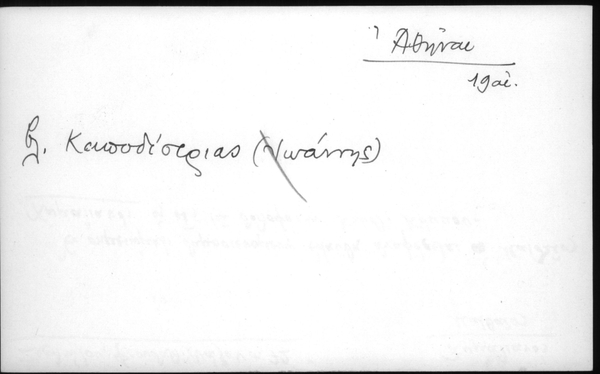 Ἀθῆναι
19 αἰ.
βλ. Καποδίστριας (Ἰωάννης)